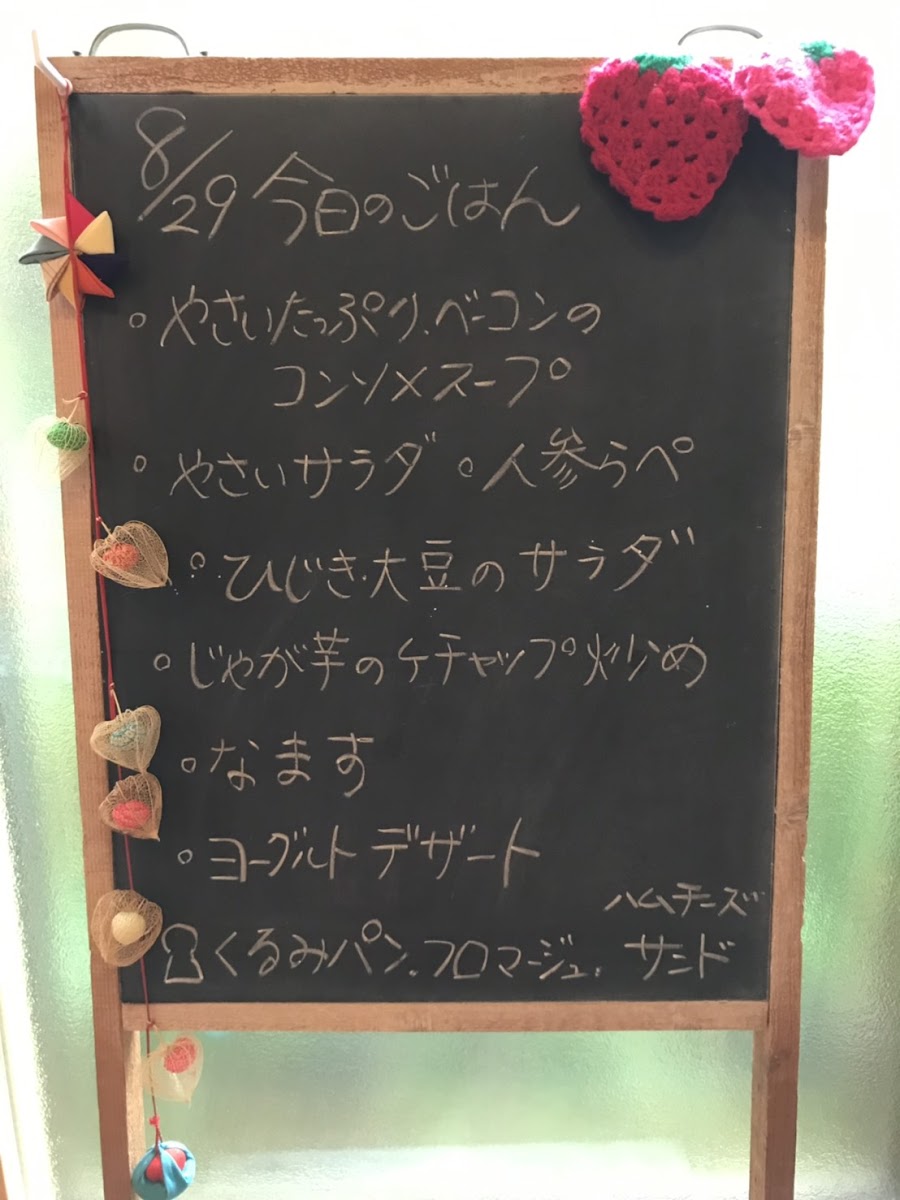 8/29 今日のごはん
。やさいたっぷり、ベーコンの
コンソメスープ
。やさいサラダ 。人参らぺ
。ひじき・大豆のサラダ
。じゃが芋のケチャップ炒め
。なます
。ヨーグルトデザート
ハムチーズ
くるみパン、フロマージュ、サンド